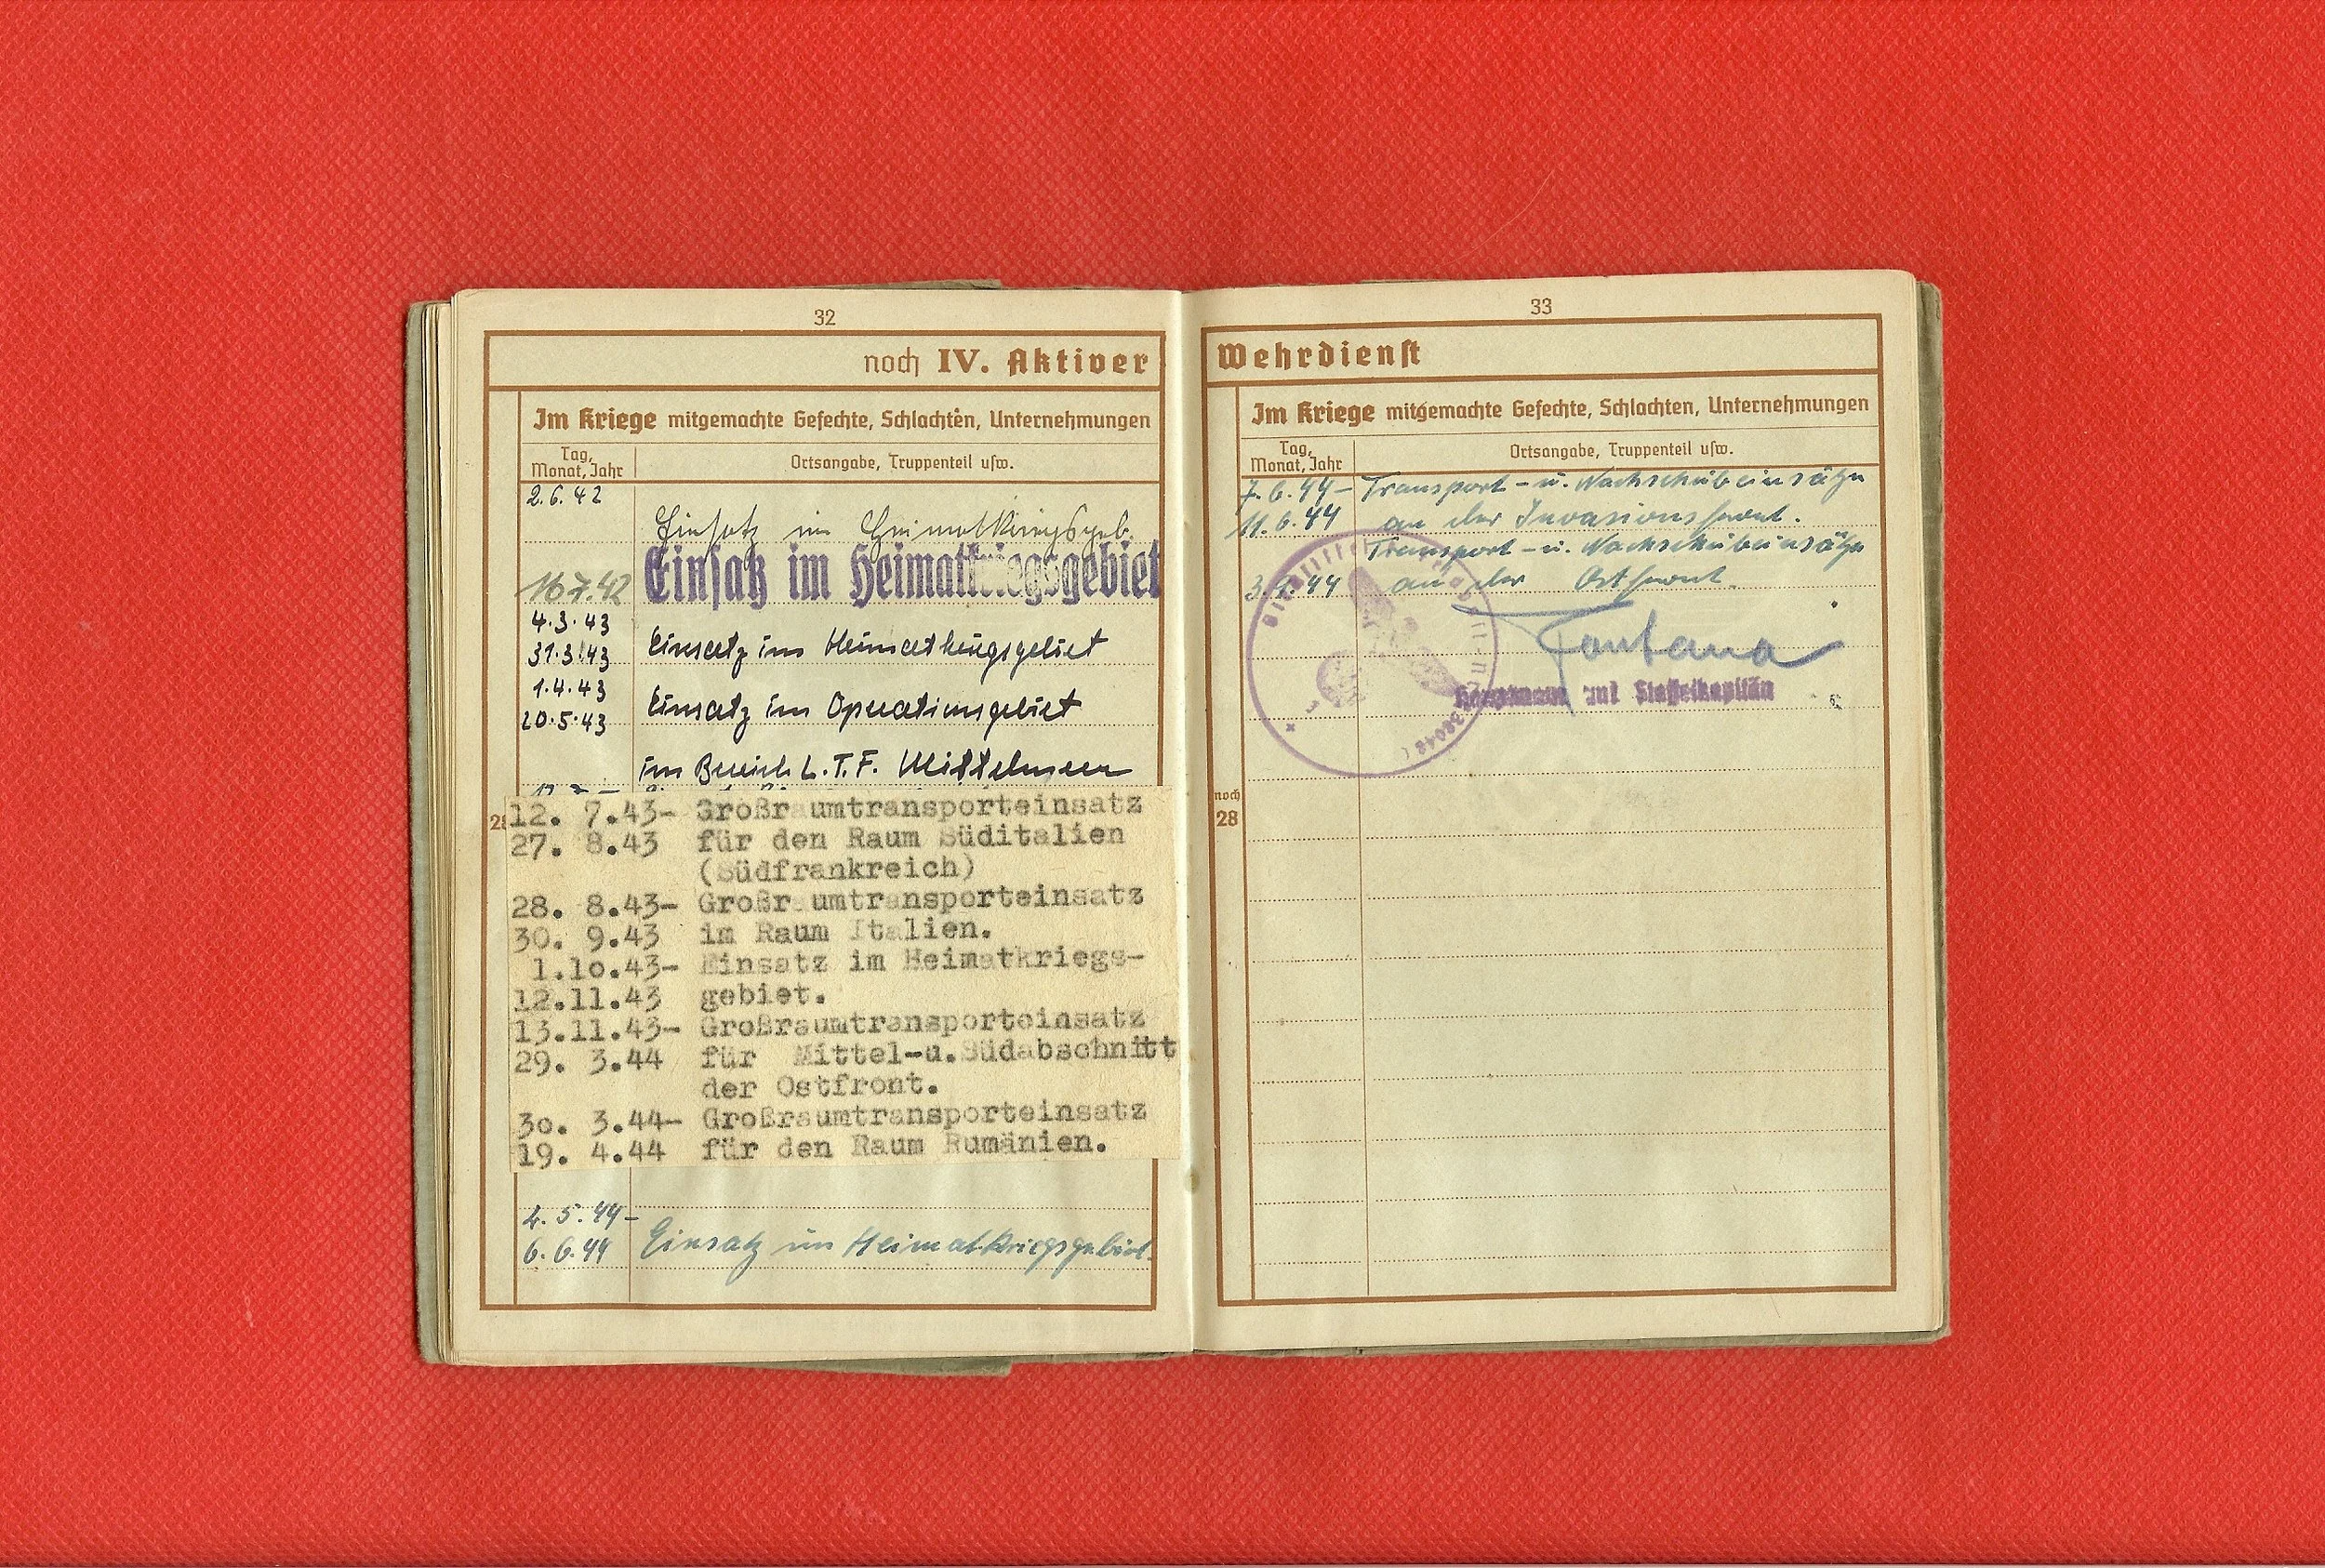 32
noch IV. Aktiver
Im Kriege mitgemachte Gefechte, Schlachten, Unternehmungen
Tag, Monat, Jahr
Ortsangabe, Truppenteil usw.
2.6.42
Einsatz im Heimatkriegsgeb.
16.7.42 Einsatz im Heimatkriegsgebiet
4.3.43
31.3.43 Einsatz im Heimatkriegsgebiet
1.4.43
20.5.43 Einsatz im Operationsgebiet
im Bereich L.T.F. Mittelmeer
28
12. 7.43- Großraumtransporteinsatz
27. 8.43 für den Raum Süditalien
(Südfrankreich)
28. 8.43- Großraumtransporteinsatz
30. 9.43 im Raum Italien.
1.10.43- Einsatz im Heimatkriegs-
12.11.43 gebiet.
13.11.43- Großraumtransporteinsatz
29. 3.44 für Mittel-u.Südabschnitt
der Ostfront.
30. 3.44- Großraumtransporteinsatz
19. 4.44 für den Raum Rumänien.
4.5.44-
6.6.44 Einsatz im Heimatkriegsgebiet.
33
Wehrdienst
Im Kriege mitgemachte Gefechte, Schlachten, Unternehmungen
Tag, Monat, Jahr
Ortsangabe, Truppenteil usw.
7.6.44- Transport-u. Nachschubeinsätze
11.6.44 an der Invasionsfront.
Transport-u. Nachschubeinsätze
an der Ostfront.
Fontana
Hauptmann und Staffelkapitän
noch
28